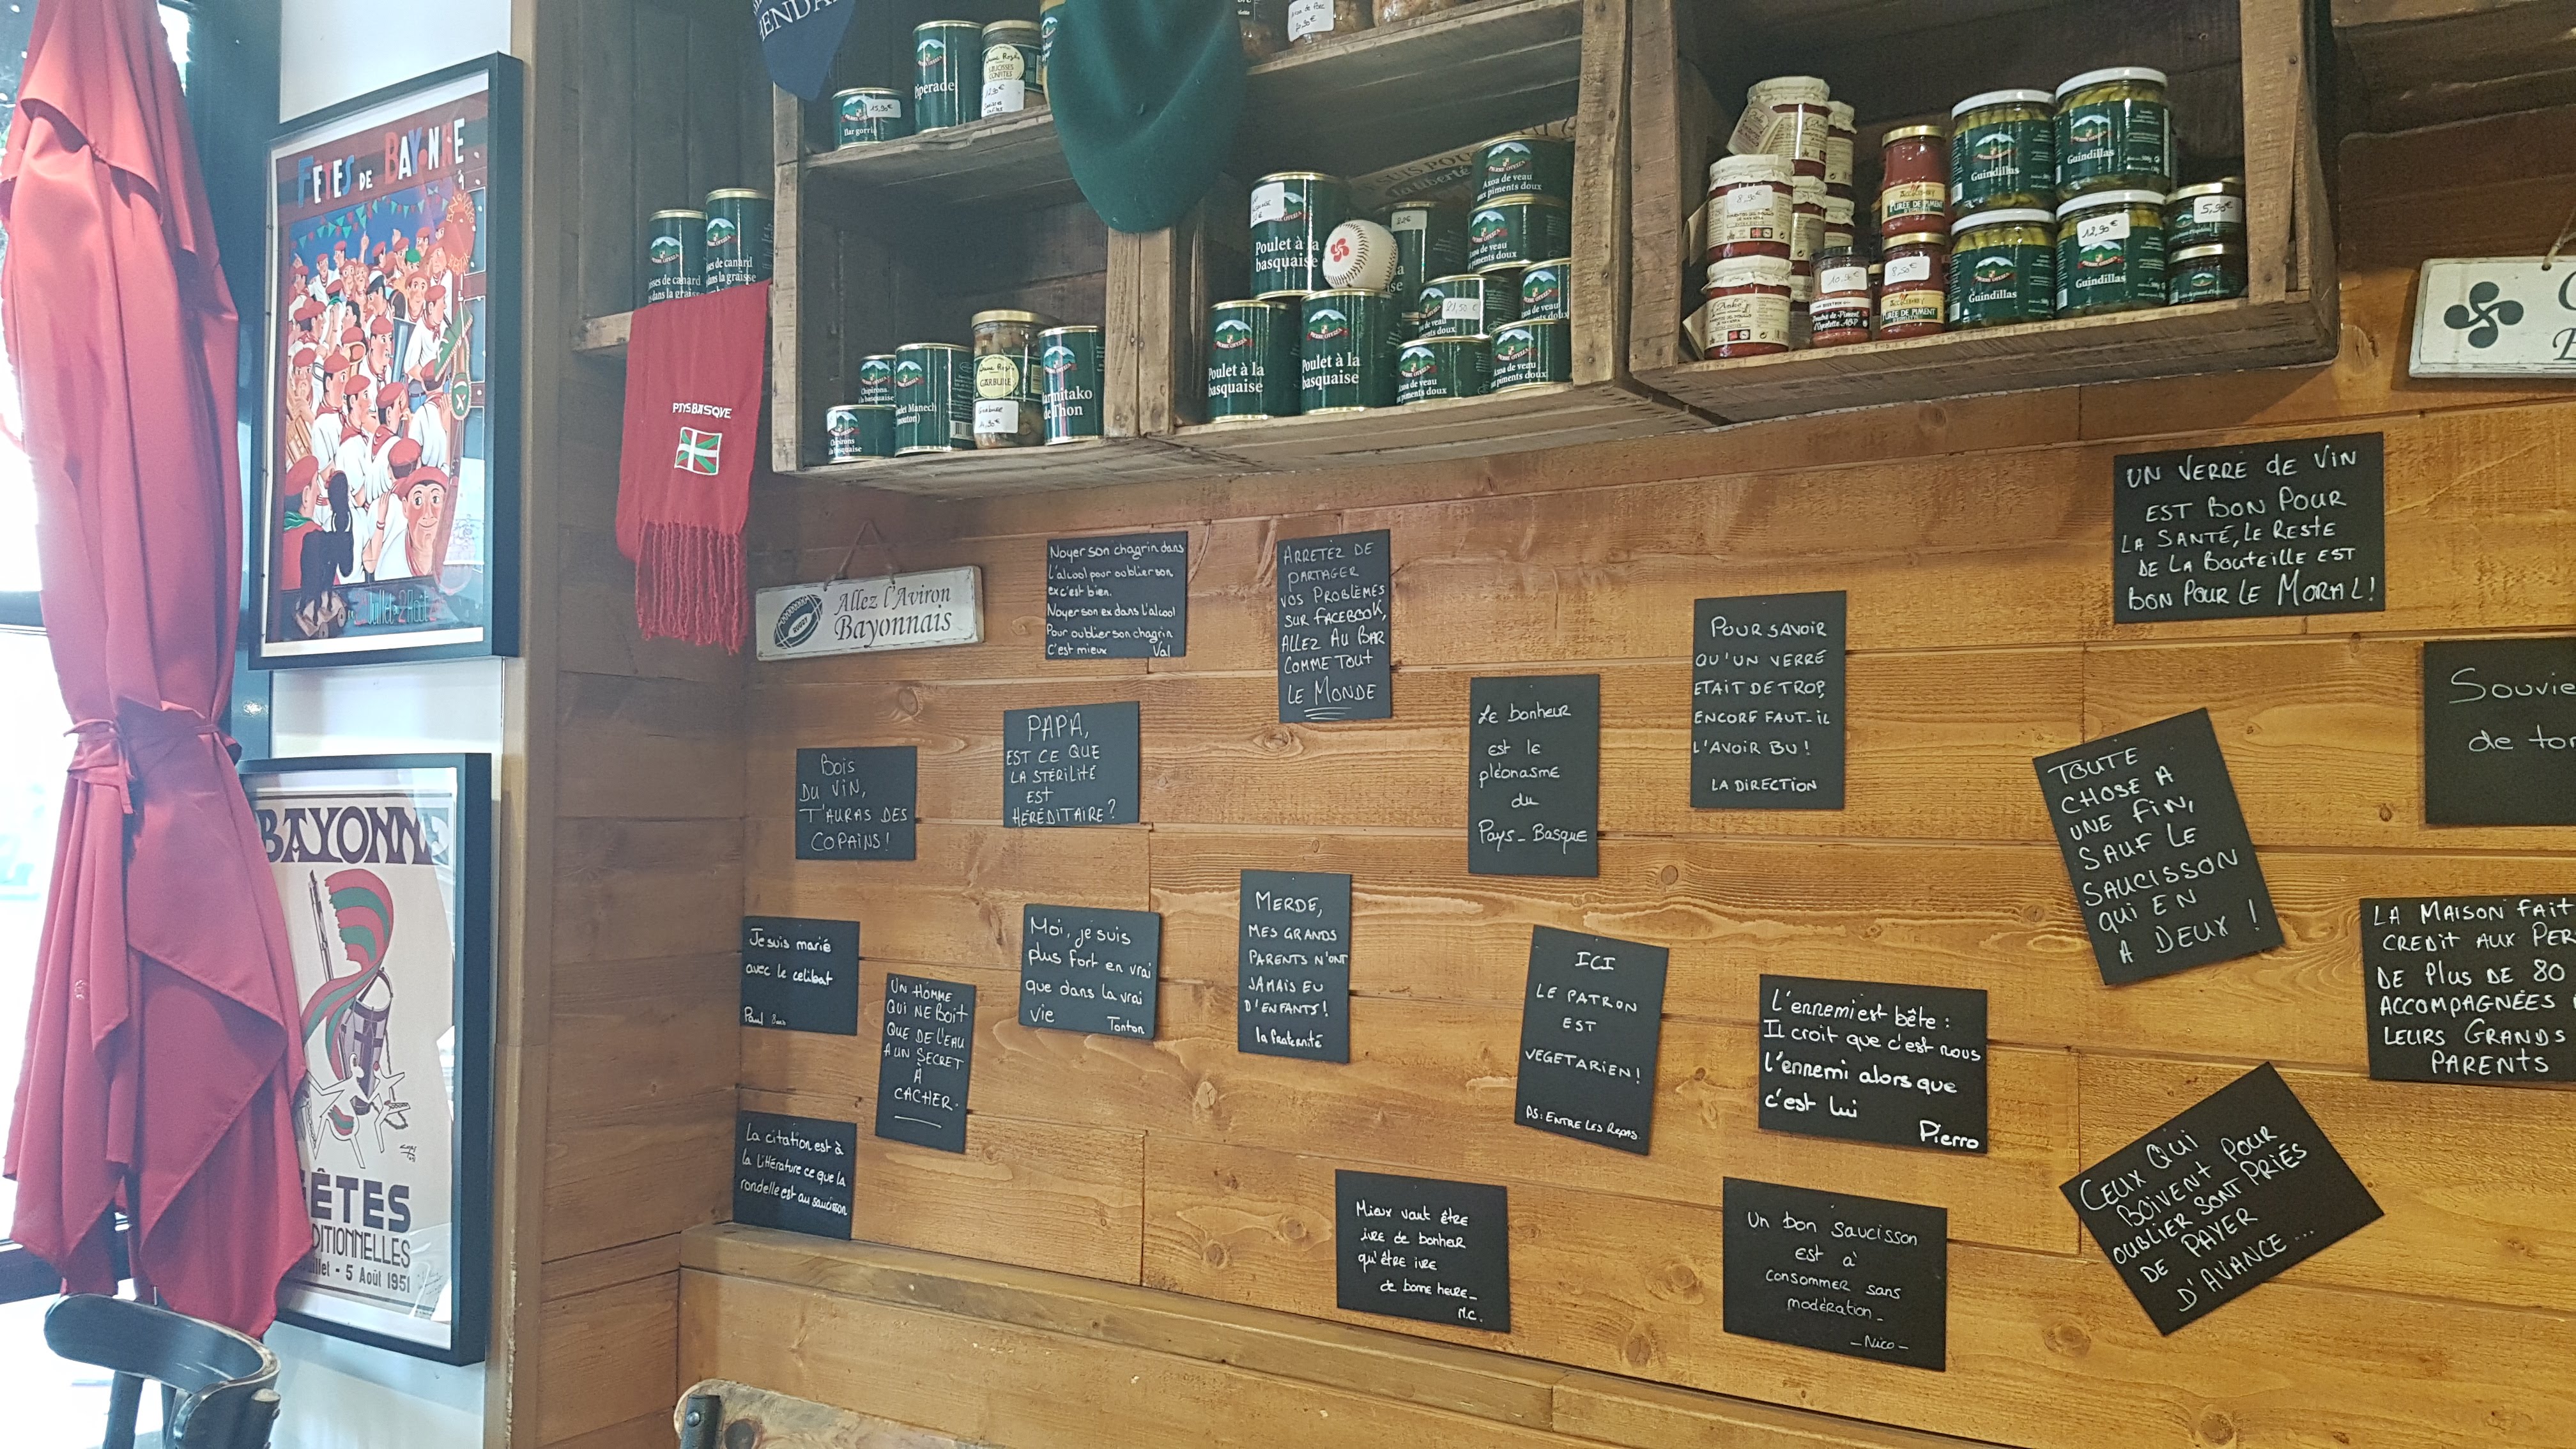 FÊTES DE BAYONNE
BAYONN
ÊTES
DITIONNELLES
5 Août 1951
PAYS BASQUE
Piperade
15,90€
Poulet à la
basquaise
Poulet à la
basquaise
Poulet à la
basquaise
Axoa de veau
aux piments doux
de veau
piments doux
GARBURE
de Thon
Guindillas
Guindillas
Guindillas
Guindillas
12,90€
5,90€
8,50€
PURÉE DE PIMENT
PURÉE DE PIMENT
Allez l'Aviron
Bayonnais
RUGBY
Noyer son chagrin dans
l'alcool pour oublier son
ex c'est bien.
Noyer son ex dans l'alcool
Pour oublier son chagrin
C'est mieux Val
ARRETEZ DE
PARTAGER
VOS PROBLÈMES
SUR FACEBOOK,
ALLEZ AU BAR
COMME TOUT
LE MONDE
UN VERRE de VIN
EST BON POUR
LA SANTÉ, LE RESTE
DE LA BOUTEILLE EST
BON POUR LE MORAL!
POUR SAVOIR
QU'UN VERRE
ETAIT DE TROP,
ENCORE FAUT-iL
L'AVOIR BU!
LA DIRECTION
Le bonheur
est le
pléonasme
du
Pays-Basque
PAPA,
EST CE QUE
LA STÉRILITÉ
EST
HÉRÉDITAIRE?
Bois
DU VIN,
T'AURAS DES
COPAINS!
TOUTE
CHOSE A
UNE FIN,
SAUF LE
SAUCISSON
QUI EN
A DEUX!
Souvie
de
LA MAISON FAIT
CREDIT AUX PER
DE Plus DE 80
ACCOMPAGNÉES
LEURS GRANDS
PARENTS
Je suis marié
avec le celibat
Paul
UN HOMME
QUI NE BOIT
QUE DE L'EAU
A UN SECRET
À
CACHER.
Moi, je suis
plus fort en vrai
que dans la vrai
vie Tonton
MERDE,
MES GRANDS
PARENTS N'ONT
JAMAIS EU
D'ENFANTS!
la fraternité
ICI
LE PATRON
EST
VEGETARIEN!
PS: ENTRE LES REPAS.
L'ennemi est bête:
Il croit que c'est nous
l'ennemi alors que
c'est lui
Pierro
La citation est à
la littérature ce que la
rondelle est au saucisson
Mieux vaut être
ivre de bonheur
qu'être ivre
de bonne heure_
M.C.
Un bon saucisson
est à
consommer sans
modération_
-Nico-
CEUX QUI
BOIVENT POUR
OUBLIER SONT PRIÉS
DE PAYER
D'AVANCE...